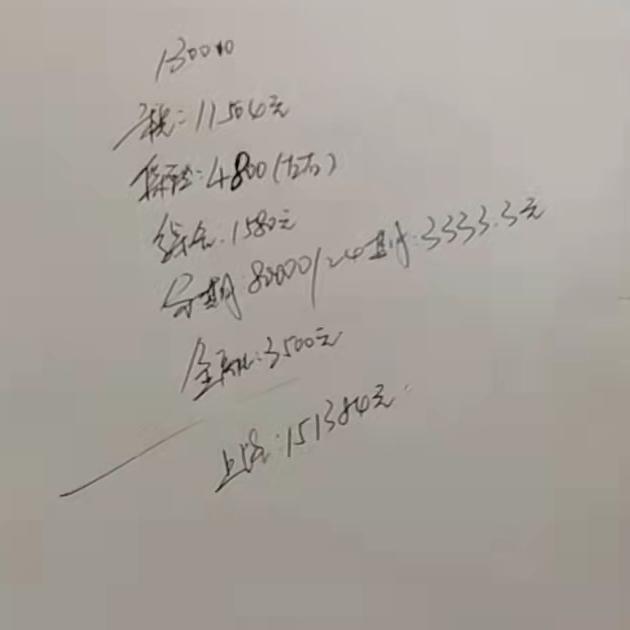 130000
税：11504元
保险：4800（左右）
综合：1580元
分期：80000/24期：3333.3元
金融：3500元
上路：151384元